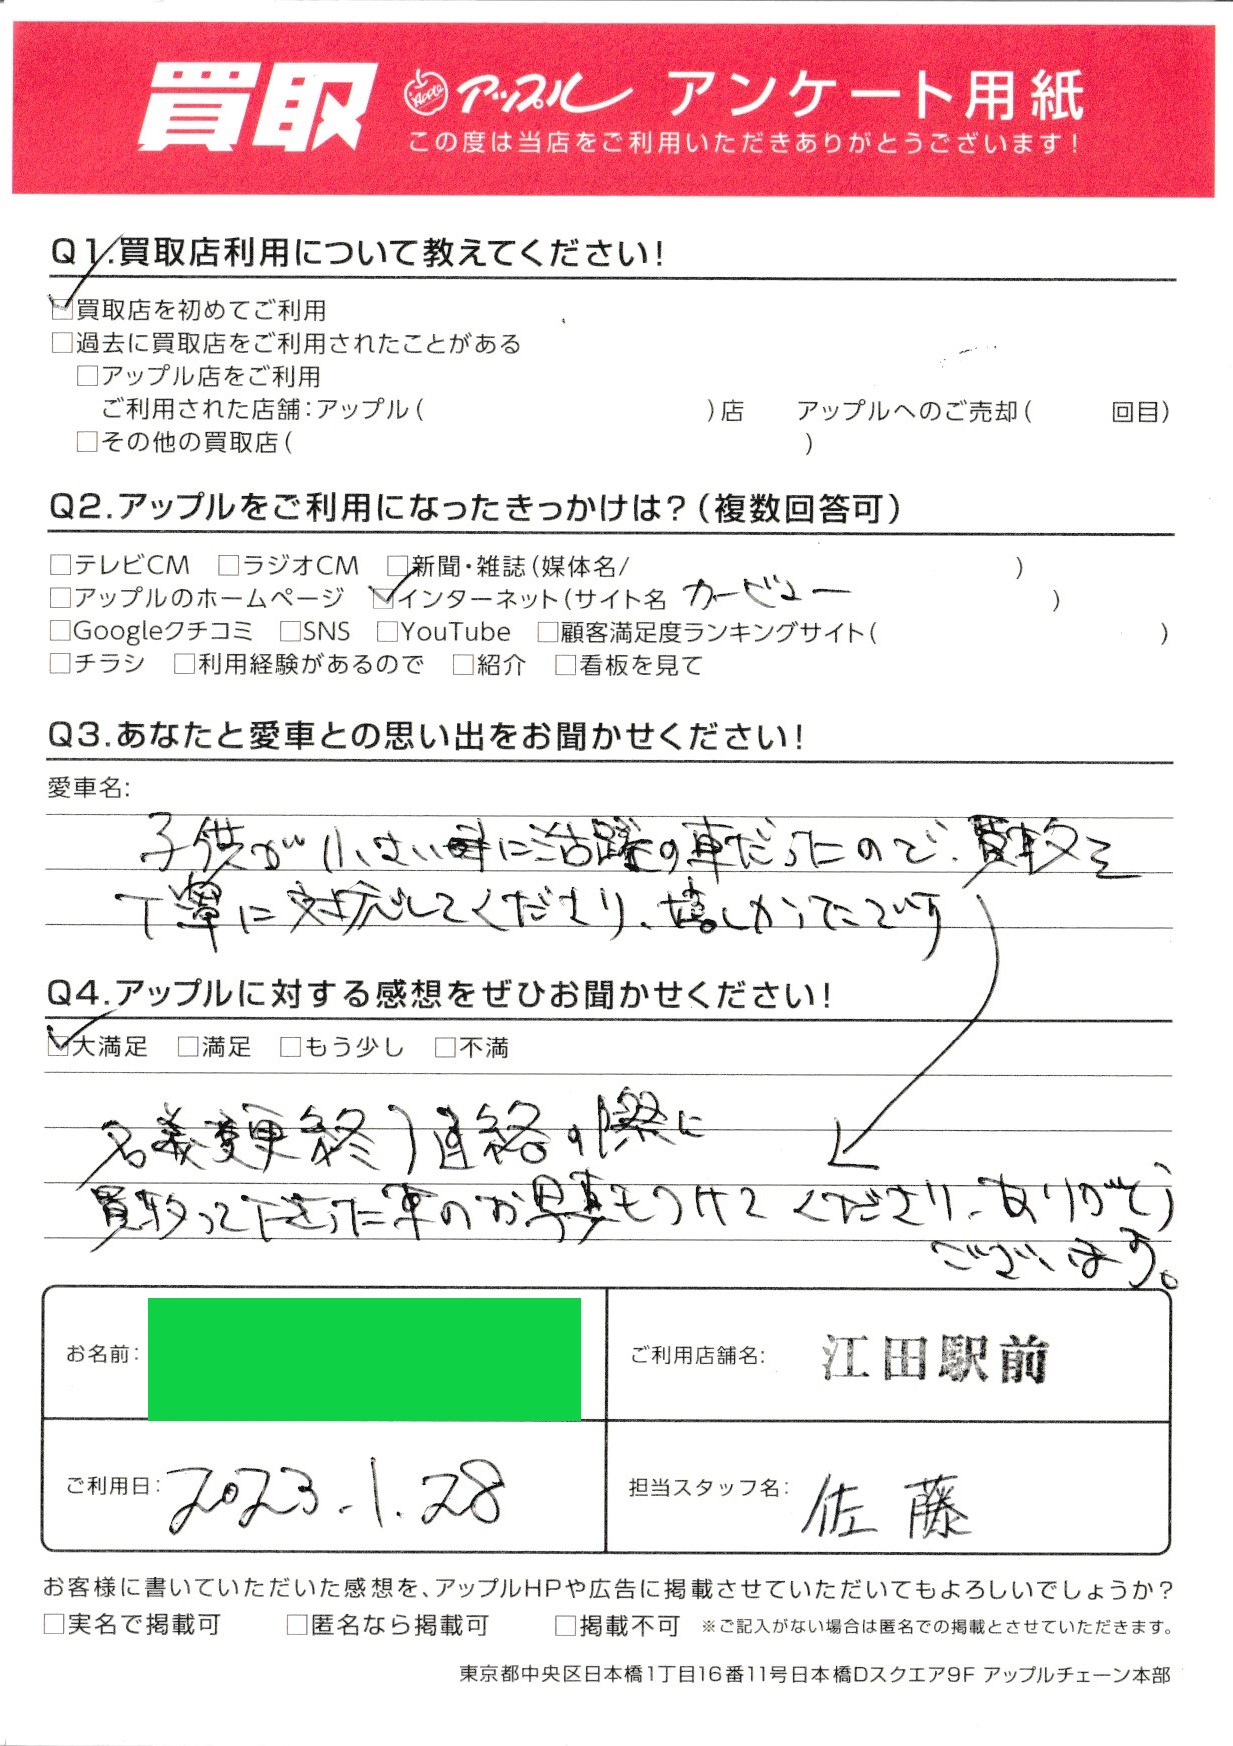 買取 Apple アップル アンケート用紙
この度は当店をご利用いただきありがとうございます!
Q1.買取店利用について教えてください!
☑買取店を初めてご利用
□過去に買取店をご利用されたことがある
□アップル店をご利用
ご利用された店舗:アップル( )店 アップルへのご売却( 回目)
□その他の買取店( )
Q2.アップルをご利用になったきっかけは?(複数回答可)
□テレビCM □ラジオCM □新聞・雑誌(媒体名/ )
□アップルのホームページ ☑インターネット(サイト名 カービュー )
□Googleクチコミ □SNS □YouTube □顧客満足度ランキングサイト( )
□チラシ □利用経験があるので □紹介 □看板を見て
Q3.あなたと愛車との思い出をお聞かせください!
愛車名:
子供が小さい時に活躍の車だったので、買取を
丁寧に対応してくださり、嬉しかったです
Q4.アップルに対する感想をぜひお聞かせください!
☑大満足 □満足 □もう少し □不満
名義変更終り連絡の際に
買取って下さった車のお写真もつけてくださり、ありがとう
ございます。
お名前: ご利用店舗名: 江田駅前
ご利用日: 2023.1.28 担当スタッフ名: 佐藤
お客様に書いていただいた感想を、アップルHPや広告に掲載させていただいてもよろしいでしょうか?
□実名で掲載可 □匿名なら掲載可 □掲載不可 ※ご記入がない場合は匿名での掲載とさせていただきます。
東京都中央区日本橋1丁目16番11号日本橋Dスクエア9F アップルチェーン本部